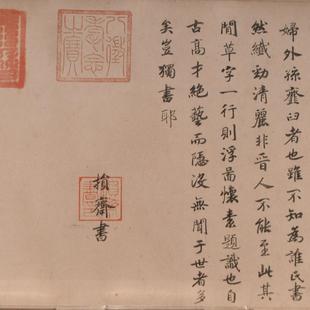 婦外孫虀臼者也雖不知為誰氏書
然纖勁清麗非晉人不能至此其
閒草字一行則浮啚懷素題識也自
古高才絕藝而隱沒無聞于世者多
矣豈獨書耶
損齋書